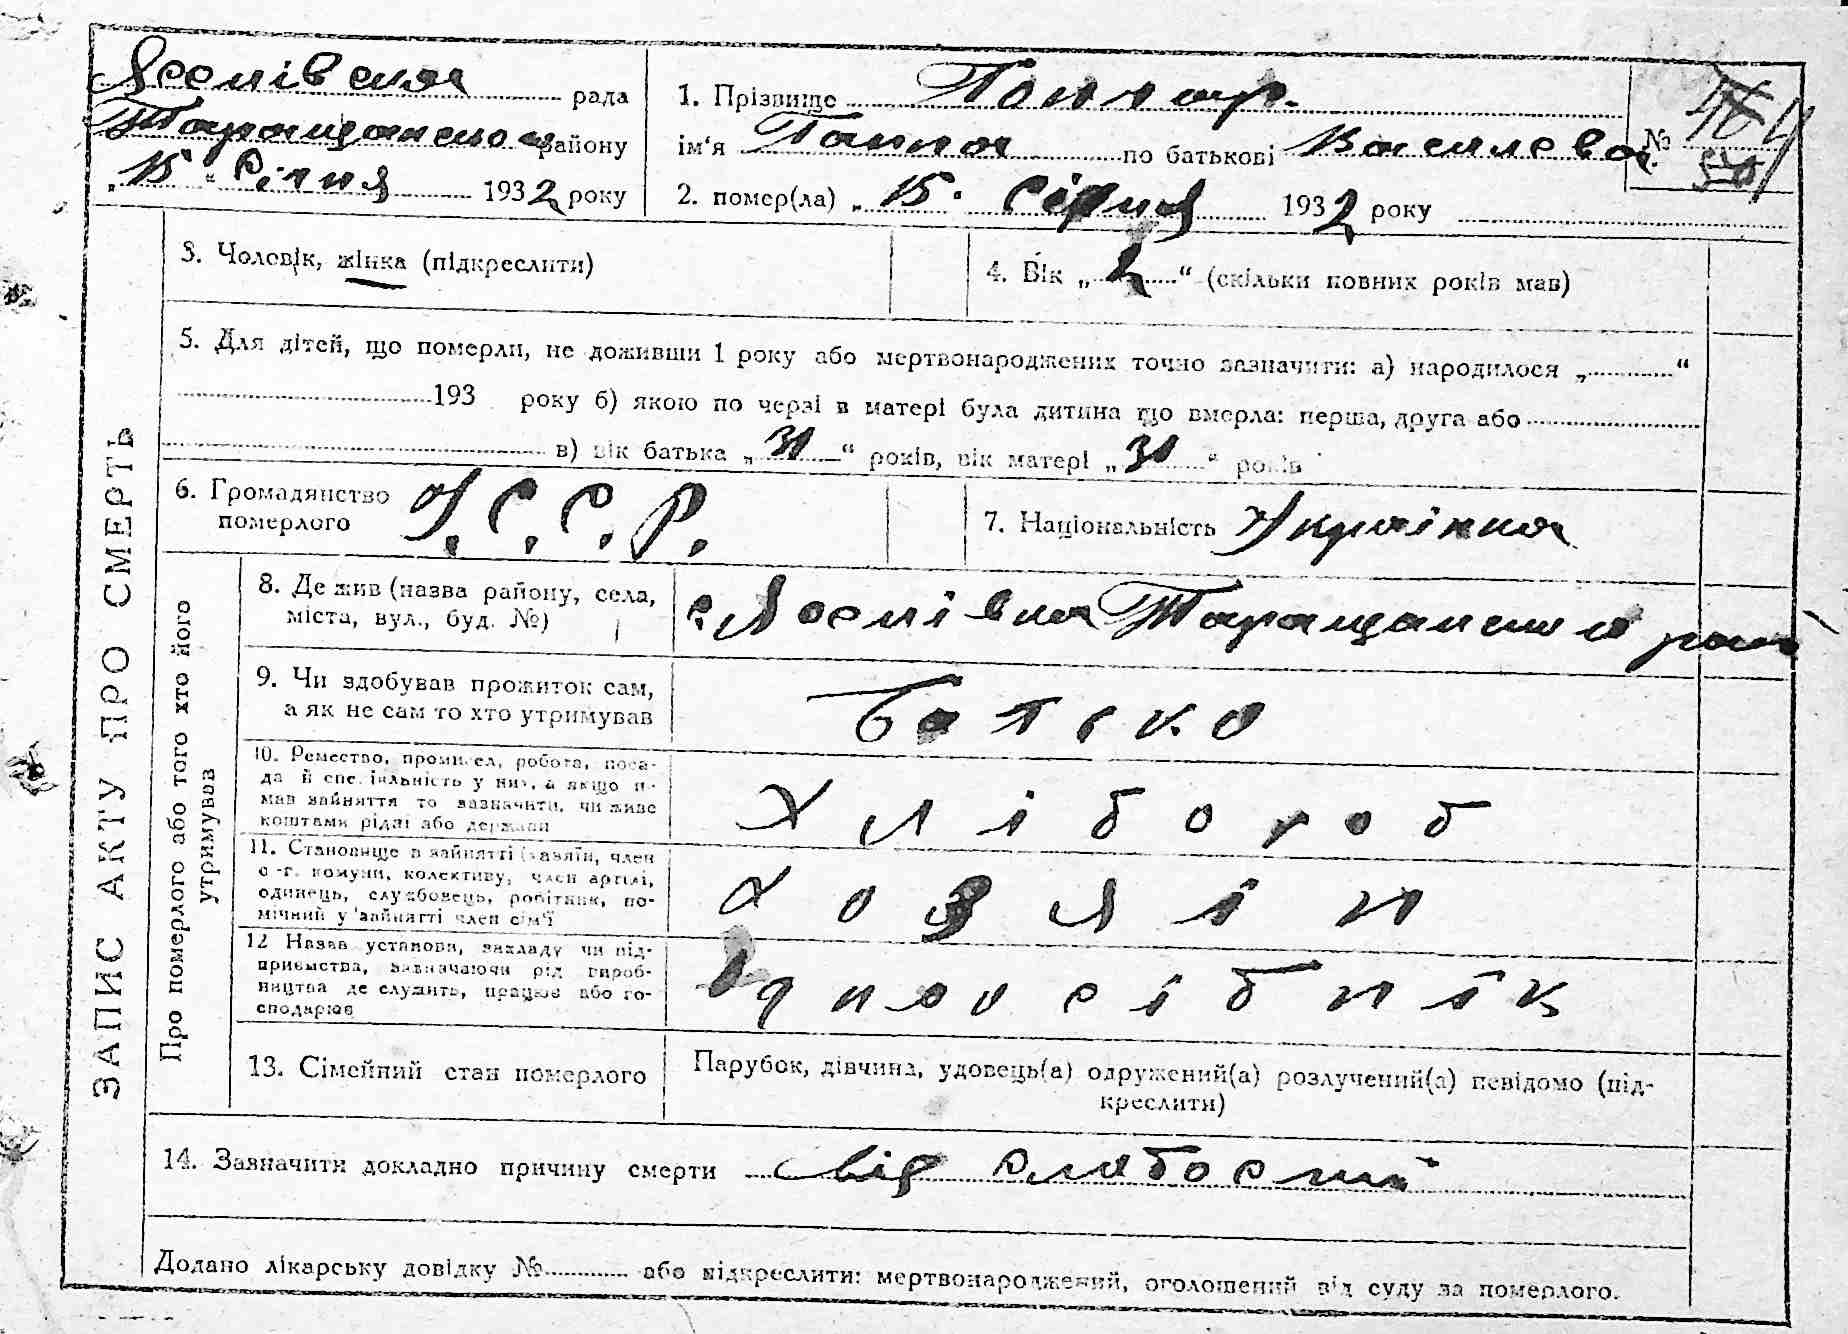 Лосятівська рада
Таращанського району
„15“ Січня 1932 року
1. Прізвище Гончар
ім'я Ганна по батькові Василева №
2. помер(ла) „15“ січня 1932 року
3. Чоловік, жінка (підкреслити)
4. Вік „2“ (скільки повних років мав)
5. Для дітей, що померли, не доживши 1 року або мертвонароджених точно зазначити: а) народилося „ “
193 року б) якою по черзі в матері була дитина що вмерла: перша, друга або
в) вік батька „31“ років, вік матері „31“ років
6. Громадянство померлого У.С.С.Р.
7. Національність Українка
ЗАПИС АКТУ ПРО СМЕРТЬ
Про померлого або того хто його утримував
8. Де жив (назва району, села,
міста, вул., буд. №)
Таращанського рай
9. Чи здобував прожиток сам,
а як не сам то хто утримував
Батько
10. Ремество, промисел, робота, поса-
да й спеціальність у них, а якщо н-
мав зайняття то зазначити, чи живе
коштами рідні або держави
Хлібороб
11. Становище в зайнятті (хазяїн, член
с.-г. комуни, колективу, член артілі,
одинець, службовець, робітник, по-
мічний у зайнятті член сім'ї
Хозяїн
12 Назва установи, закладу чи під-
приємства, зазначаючи рід вироб-
ництва де служить, працює або го-
сподарює
Одноосібнік
13. Сімейний стан померлого
Парубок, дівчина, удовець(а) одружений(а) розлучений(а) невідомо (під-
креслити)
14. Зазначити докладно причину смерти від слабости
Додано лікарську довідку № або підкреслити: мертвонароджений, оголошений від суду за померлого.